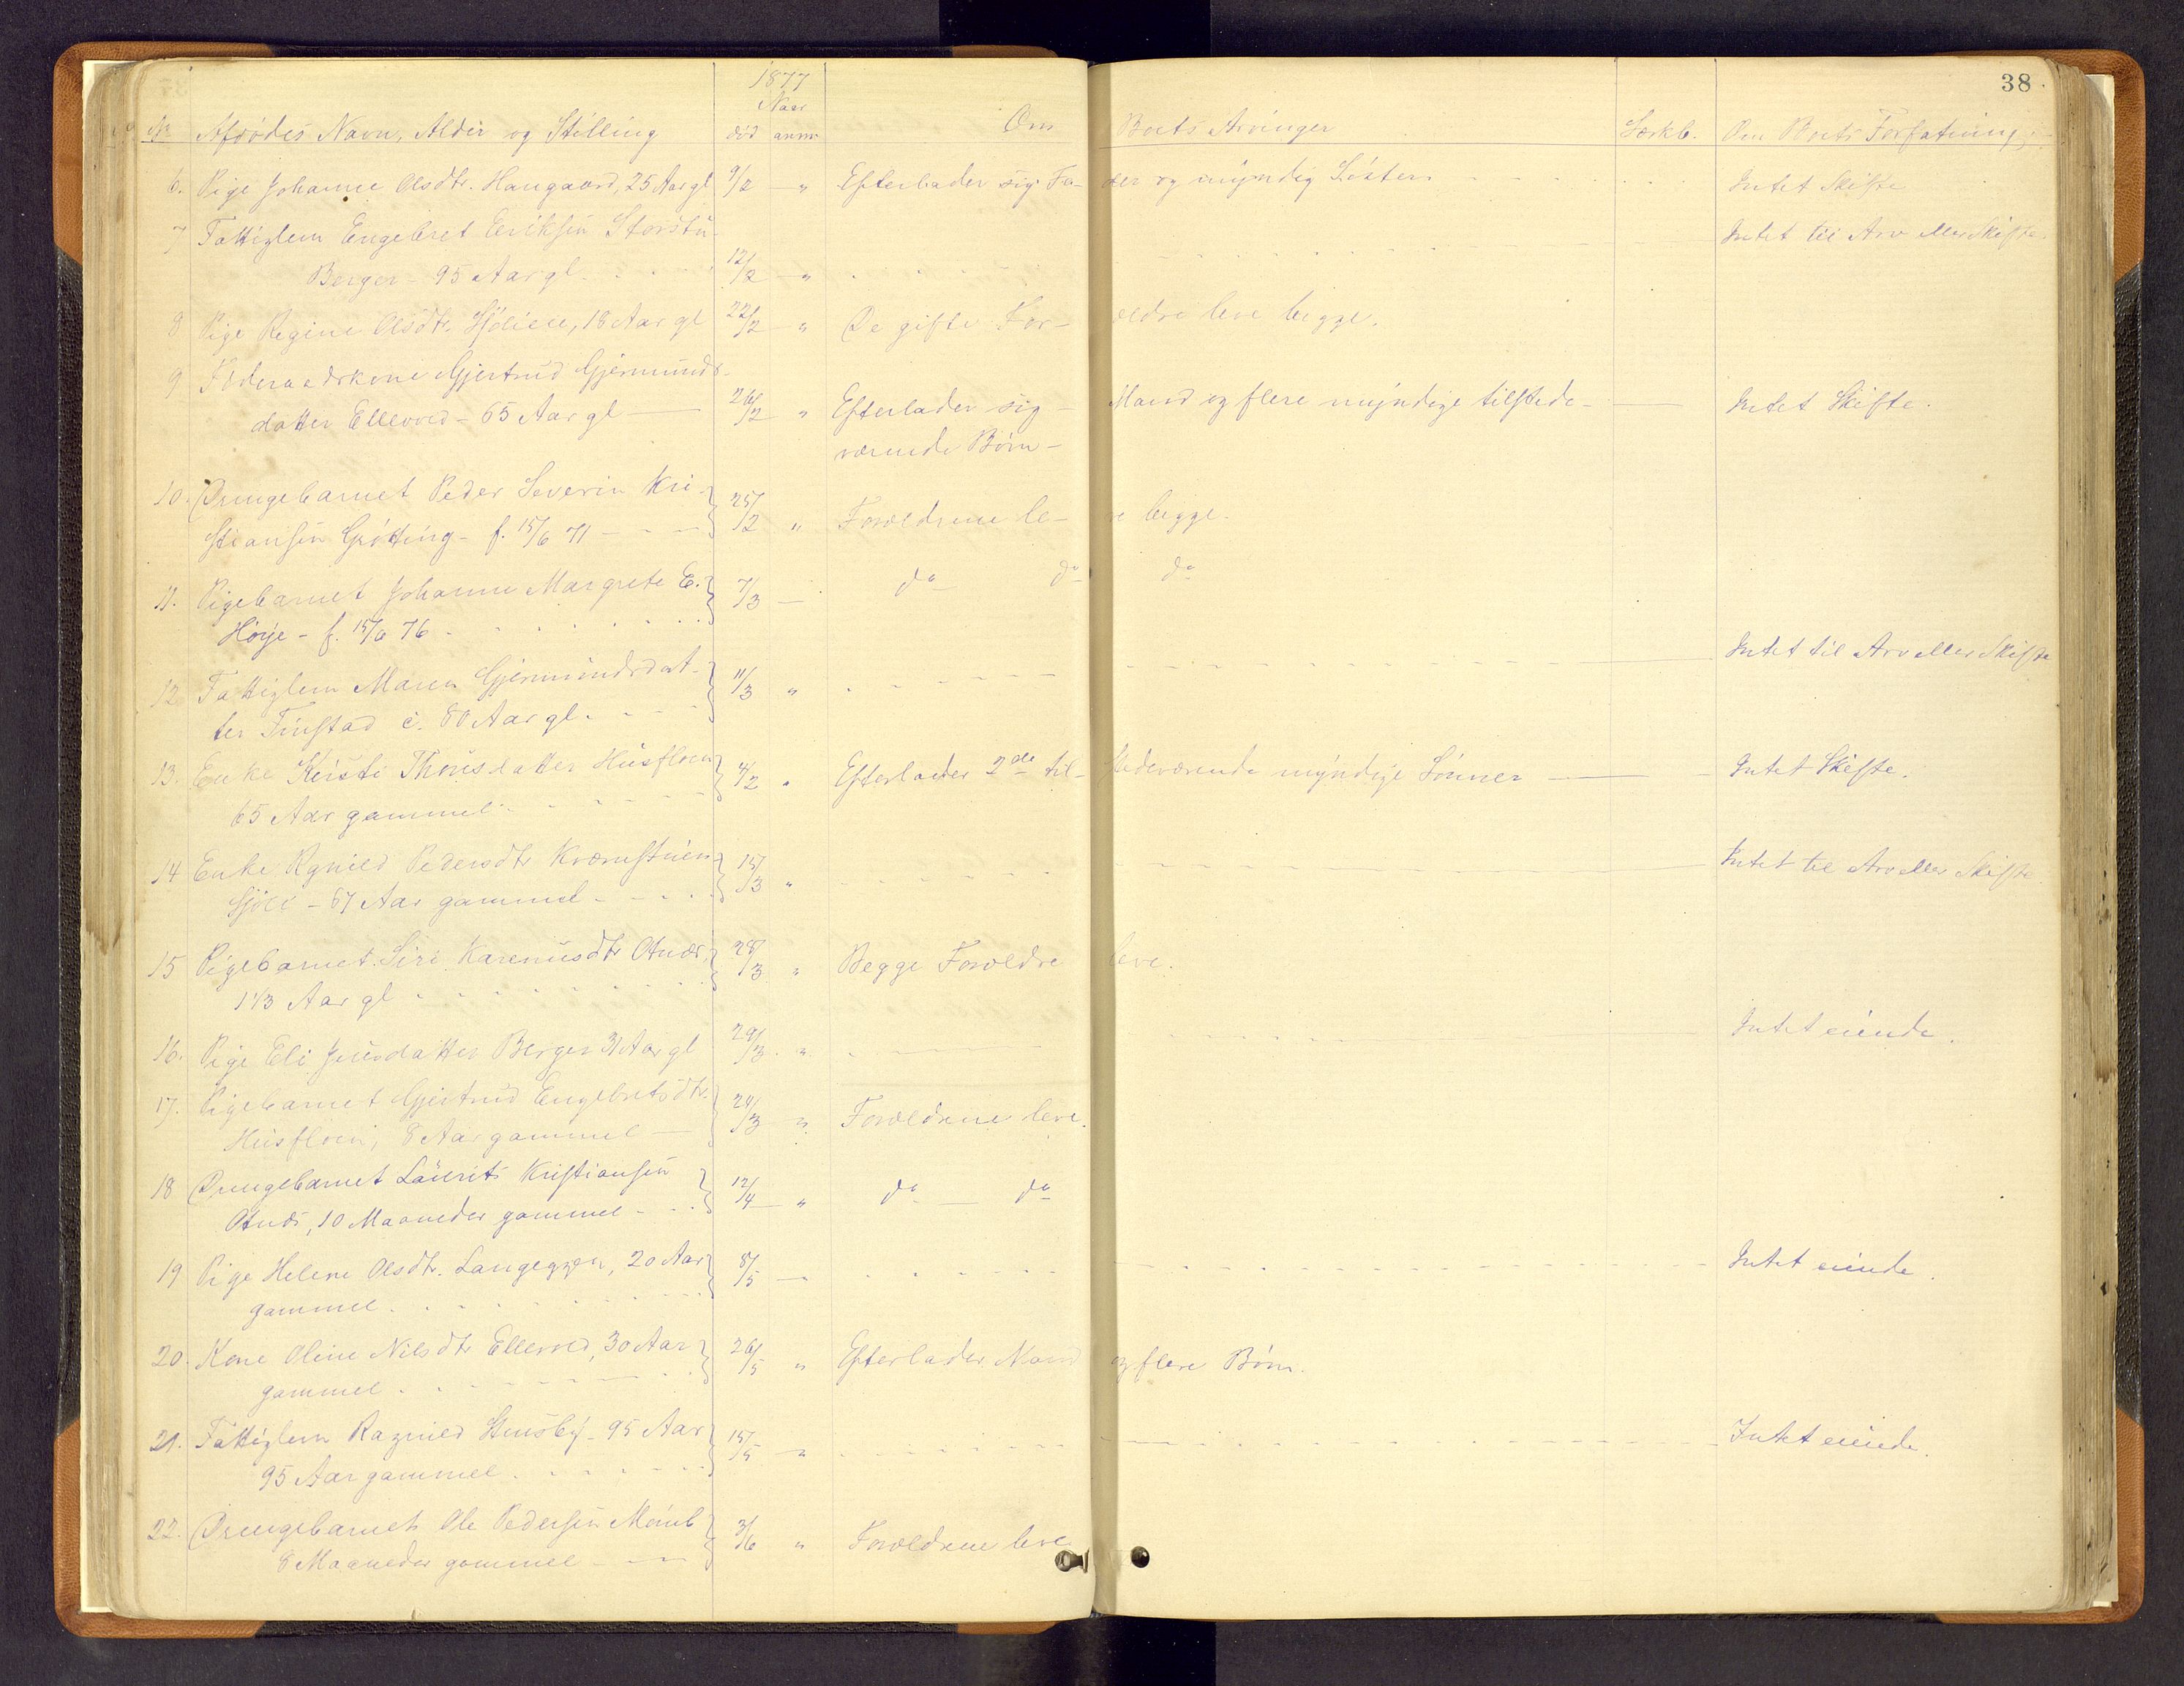 38
1877
Naar
No Afdødes Navn, Alder og Stilling død anm. Om Boets Arvinger Særkb. Om Boets Forfatning
6. Pige Johanne Olsdtr. Haugaard, 25 Aar gl 9/2 " Efterlader sig Fa- der og myndig Søster Intet Skifte
7 Fattiglem Engebret Eriksen Storstu- Intet til Arv eller Skifte.
Berger - 95 Aar gl. 12/2 "
8 Pige Regine Olsdtr. Sjøliee, 18 Aar gl 22/2 " De gifte For- ældre leve begge.
9 Føderaadskone Gjertrud Gjermunds-
datter Ellevold - 65 Aar gl 26/2 " Efterlader sig Mand og flere myndige tilstede- Intet Skifte.
værende Børn -
10. Drengebarnet Peder Severin Kri-
stiansen Grøtting - f. 15/6 71 25/2 " Forældrene le- ve begge.
11. Pigebarnet Johanne Margrete E. 7/3 do do do
Høye - f. 15/6 76
12. Fattiglem Maren Gjermundsdat- 11/3 " Intet til Arv eller Skifte
ter Finstad c. 80 Aar gl.
13. Enke Kristi Thorisdatter Husfloen 4/2 " Efterlader 2de til- stedeværende myndige Sønner Intet Skifte.
65 Aar gammel
14 Enke Ragnild Pedersdtr Kværnstuen 15/3 " Intet til Arv eller Skifte
Sjöli - 67 Aar gammel
15 Pigebarnet Siri Karenusdtr Otnæs, 28/3 " Begge Forældre leve.
1 1/3 Aar gl
16. Pige Eli Jensdatter Berger 31 Aar gl 29/3 " Intet eiende.
17. Pigebarnet Gjertrud Engebretsdtr.
Husfloen, 8 Aar gammel 24/3 " Forældrene leve.
18 Drengebarnet Laurits Kristiansen
Otnæs, 10 Maaneder gammel 12/4 " do do
19 Pige Helene Olsdtr. Langeggen, 20 Aar 8/5 Intet eiende.
gammel
20. Kone Oline Nilsdtr Ellevold, 30 Aar 26/5 " Efterlader Mand og flere Børn.
gammel
21. Fattiglem Ragnild Stensby - 95 Aar 15/5 " Intet eiende.
95 Aar gammel
22. Drengebarnet Ole Pedersen 3/6 " Forældrene leve
8 Maaneder gammel